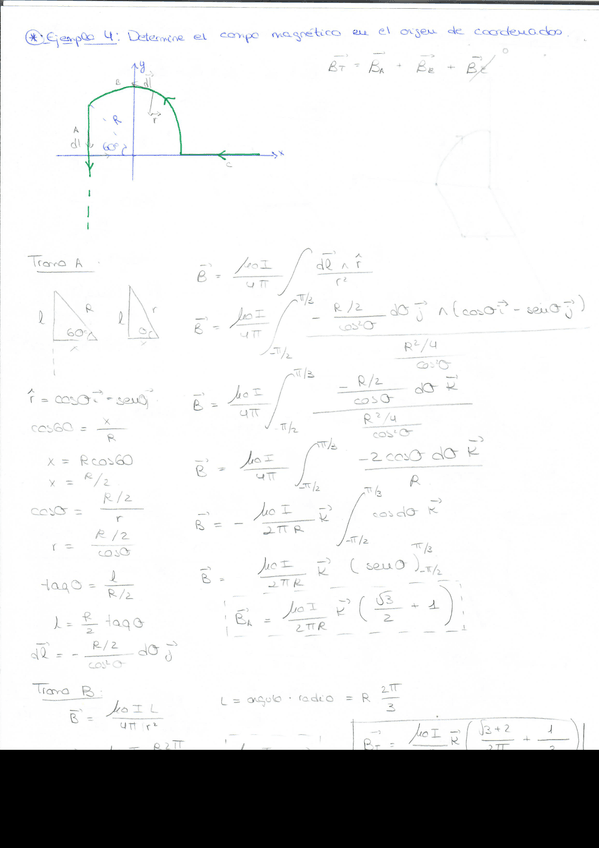 * Ejemplo 4: Determine el campo magnético en el origen de coordenadas.
B⃗_T = B⃗_A + B⃗_B + B⃗_C 0
y
B
dl⃗
A
R
r⃗
dl
60º
x
C
Tramo A
B⃗ = μ0 I / 4π ∫ dl⃗ ∧ r̂ / r²
l R 60º x
l r θ
B⃗ = μ0 I / 4π ∫_{-π/2}^{π/3} - R/2 / cos²θ dθ j⃗ ∧ (cosθ i⃗ - senθ j⃗) / R²/4 / cos²θ
r̂ = cosθ i⃗ - senθ j⃗
B⃗ = μ0 I / 4π ∫_{-π/2}^{π/3} - R/2 / cosθ dθ k⃗ / R²/4 / cos²θ
cos60 = x / R
x = R cos60
B⃗ = μ0 I / 4π ∫_{-π/2}^{π/3} -2 cosθ dθ k⃗ / R
x = R/2
cosθ = R/2 / r
B⃗ = - μ0 I / 2πR k⃗ ∫_{-π/2}^{π/3} cos dθ k⃗
r = R/2 / cosθ
tagθ = l / R/2
B⃗ = μ0 I / 2πR k⃗ (senθ)_{-π/2}^{π/3}
l = R/2 tagθ
B⃗_A = μ0 I / 2πR k⃗ (√3/2 + 1)
dl⃗ = - R/2 / cos²θ dθ j⃗
Tramo B:
L = angulo · radio = R 2π/3
B⃗ = μ0 I L / 4π r²
B⃗_T = μ0 I k⃗ (√3+2 / 2π + 1